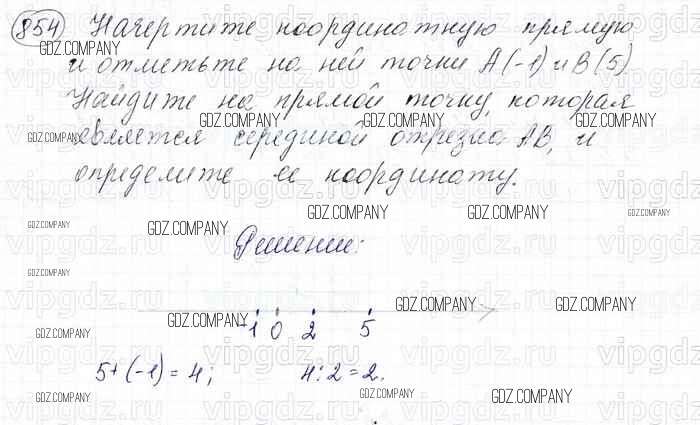 854 Начертите координатную прямую
и отметьте на ней точки А(-1) и В(5)
GDZ.COMPANY
Найдите на прямой точку, которая
GDZ.COMPANY GDZ.COMPANY GDZ.COMPANY
является серединой отрезка АВ, и
GDZ.COMPANY
определите ее координату.
GDZ.COMPANY GDZ.COMPANY GDZ.COMPANY
GDZ.COMPANY GDZ.COMPANY
Решение:
vipgdz.ru vipgdz.ru vipgdz.ru
GDZ.COMPANY
GDZ.COMPANY GDZ.COMPANY
GDZ.COMPANY
-1 0 2 5
GDZ.COMPANY
vipgdz.ru vipgdz.ru vipgdz.ru
5+(-1)=4; 4:2=2.
GDZ.COMPANY GDZ.COMPANY GDZ.COMPANY
vipgdz.ru vipgdz.ru vipgdz.ru